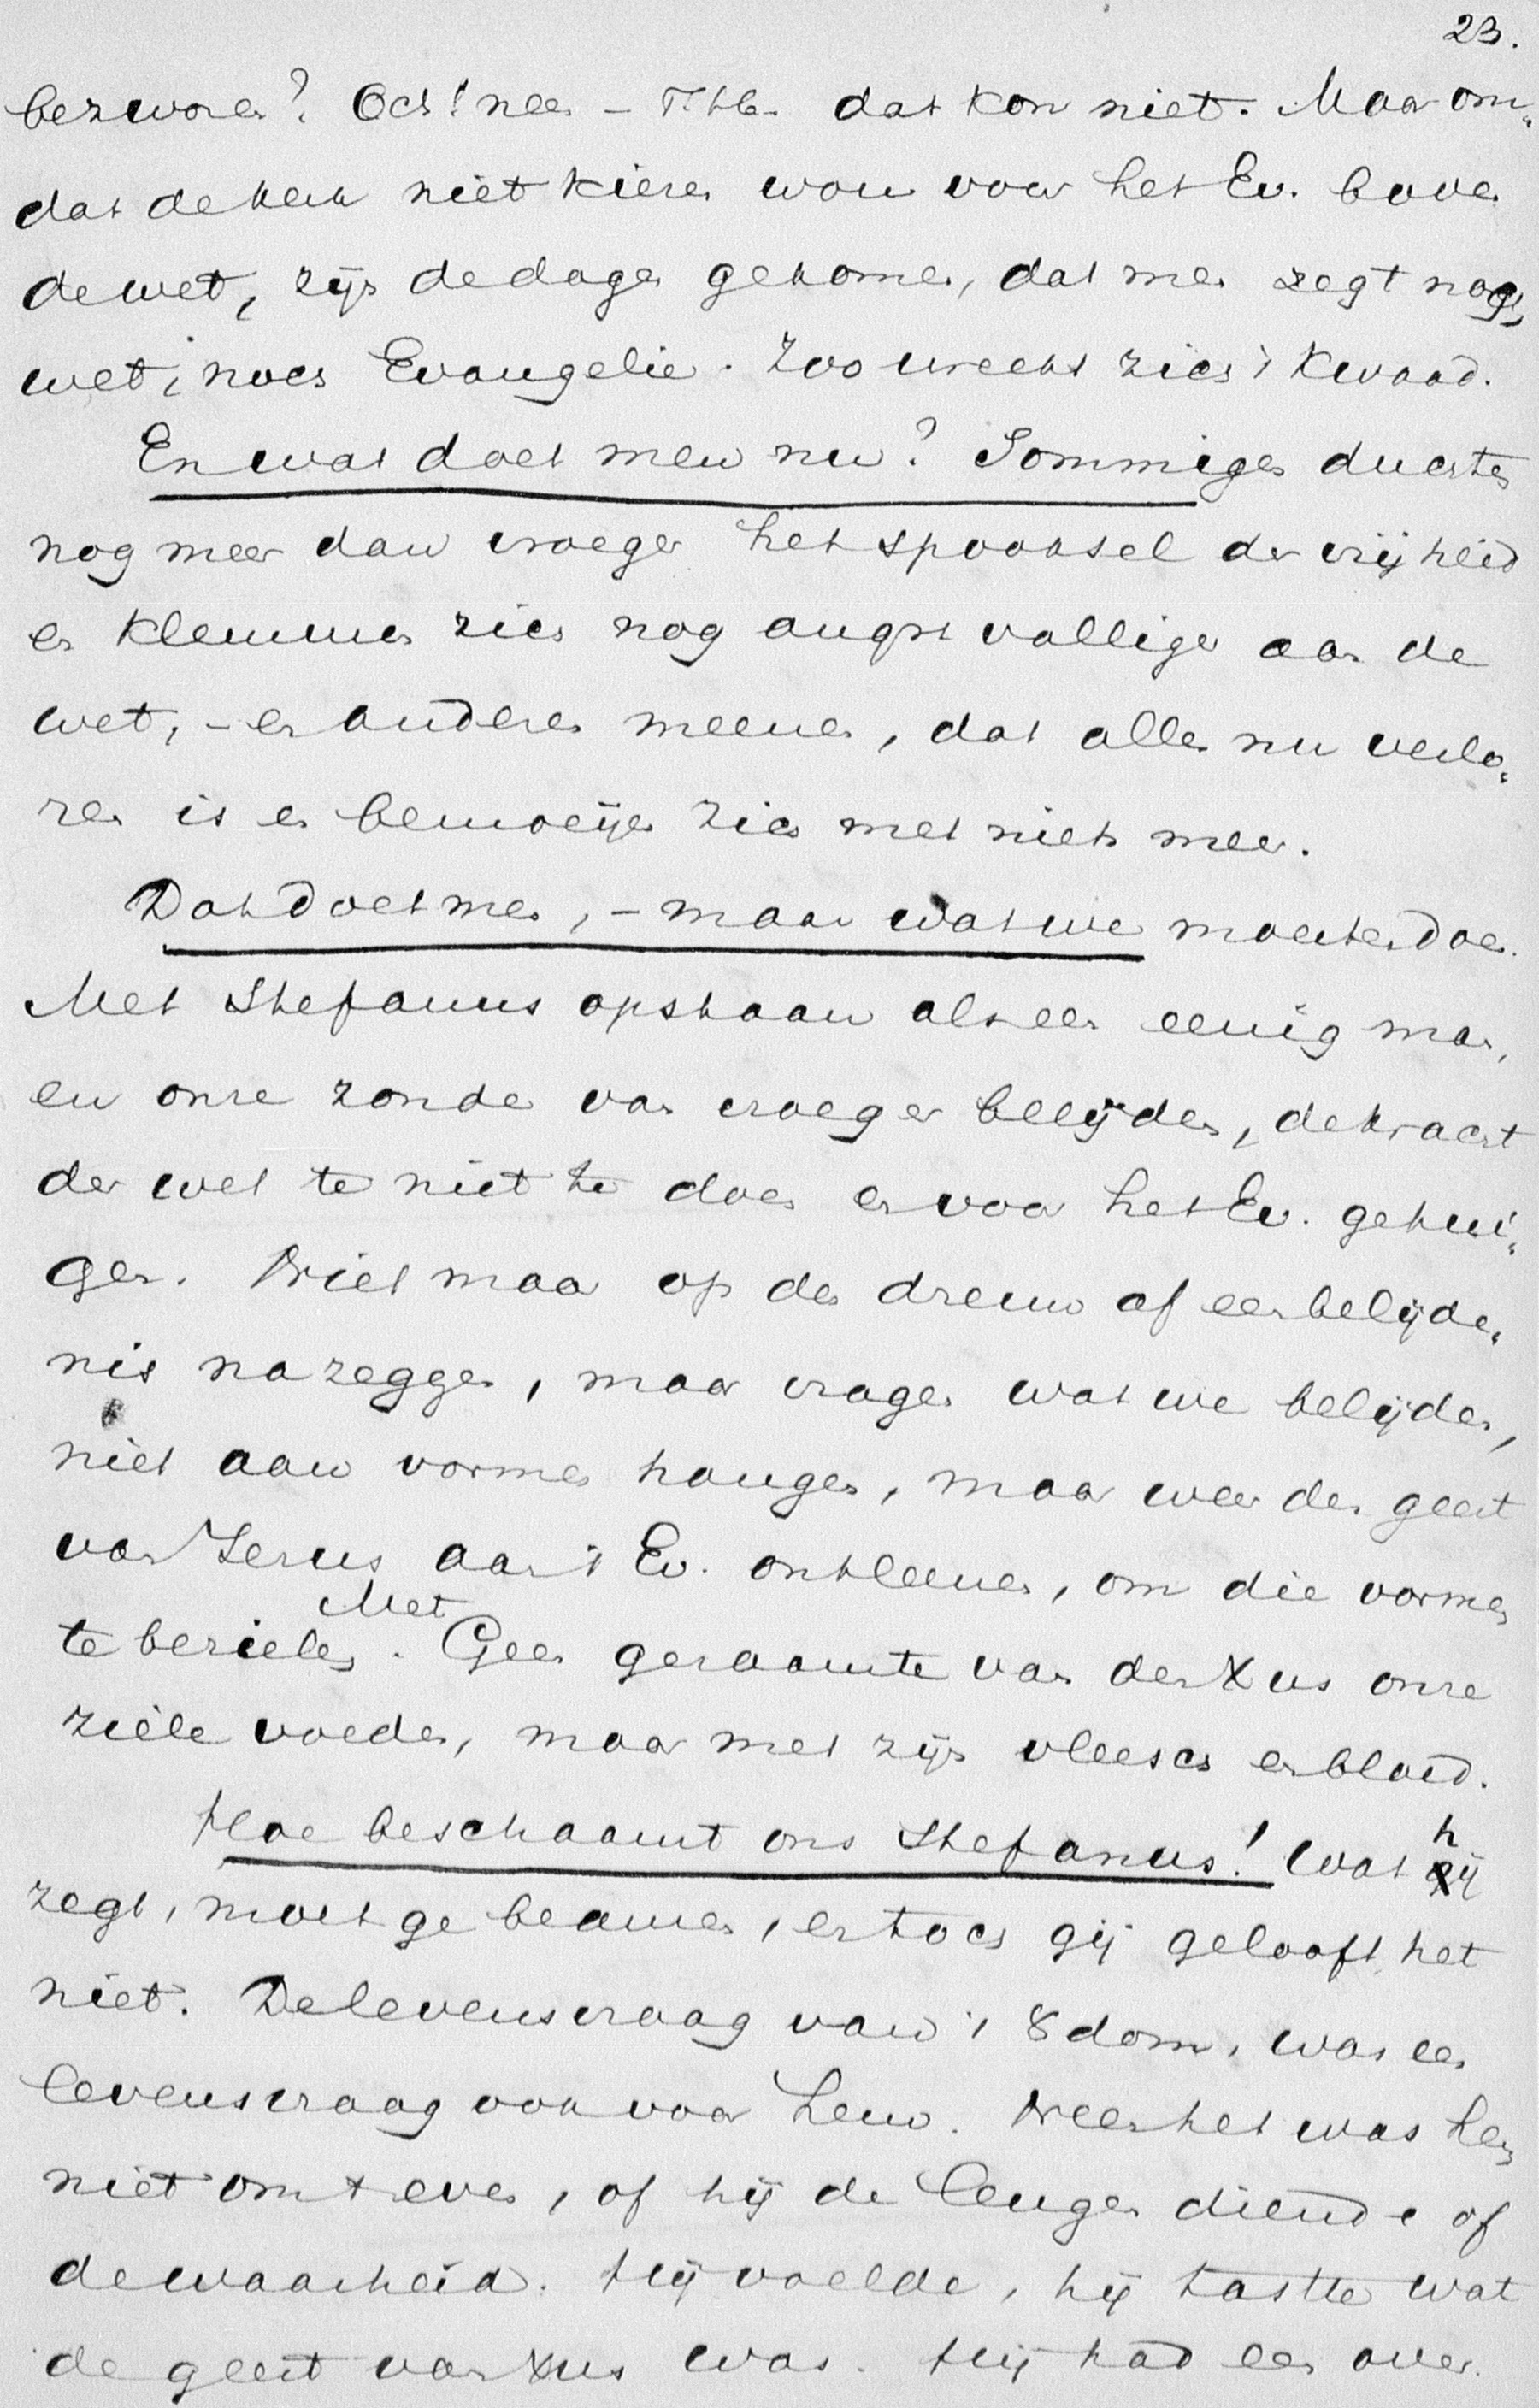 23.
bezworen? Och! neen – M.H. dat kon niet. Maar om„
dat de kerk niet kiezen wou voor het Ev. boven
de wet, zijn de dagen gekomen, dat men zegt noch
wet, noch Evangelie. Zoo wreekt zich 't kwaad.
En wat doet men nu? Sommigen duchten
nog meer dan vroeger het spooksel der vrijheid
en klemmen zich nog angstvalliger aan de
wet, – en anderen meenen, dat alles nu verlo„
ren is en bemoeijen zich met niets meer.
Dat doet men, – maar wat we moesten doen.
Met Stefanus opstaan als een eenig man,
en onze zonde van vroeger belijden, de kracht
der wet te niet te doen en voor het Ev. getui„
gen. Niet maar op den dreun af een belijde„
nis nazeggen, maar vragen wat we belijden,
niet aan vormen hangen, maar weer den geest
van Jezus aan 't Ev. ontleenen, om die vormen
te bezielen. Met Geen geraamte van den Xus onze
ziele voeden, maar met zijn vleesch en bloed.
Hoe beschaamt ons Stefanus! Wat hij
zegt, moet ge beamen, en toch gij gelooft het
niet. De levensvraag van 't 8dom, was een
levensvraag ook voor hem. Neen het was hem
niet om t even, of hij de leugen diende of
de waarheid. Hij voelde, hij tastte wat
de geest van Xus was. Hij had een over„